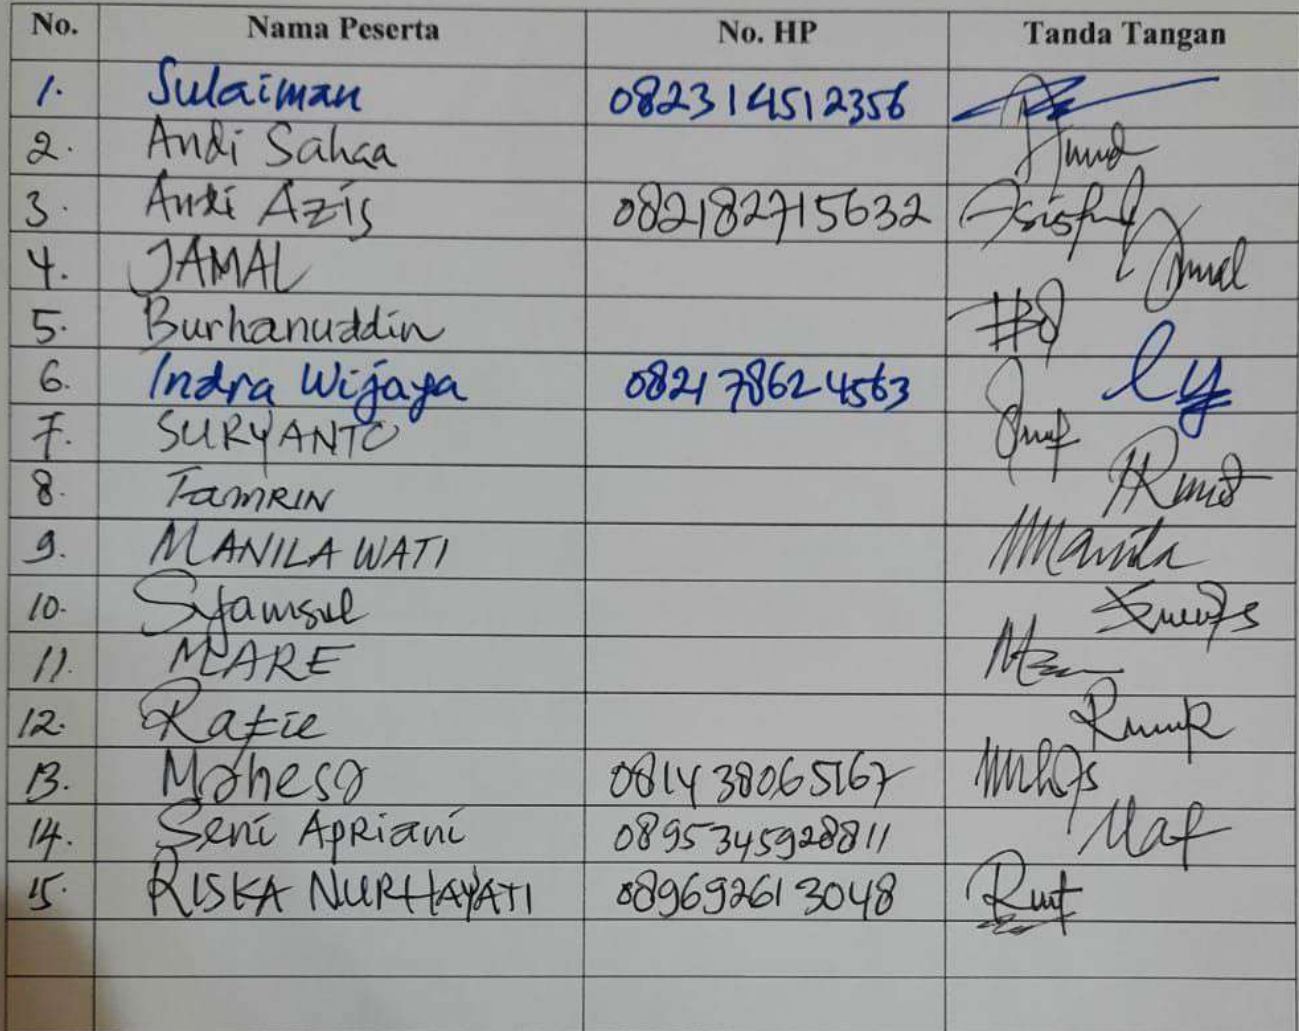 No. Nama Peserta No. HP Tanda Tangan
1. Sulaiman 082314512356
2. Andi Sahaa
3. Andi Azis 082182715632
4. JAMAL
5. Burhanuddin
6. Indra Wijaya 082178624563
7. SURYANTO
8. TAMRIN
9. MANILA WATI Manila
10. Syamsul
11. MARE
12. Rafie
13. Mahesa 081438065167
14. Seni Apriani 0895345928811
15. RISKA NURHAYATI 089692613048